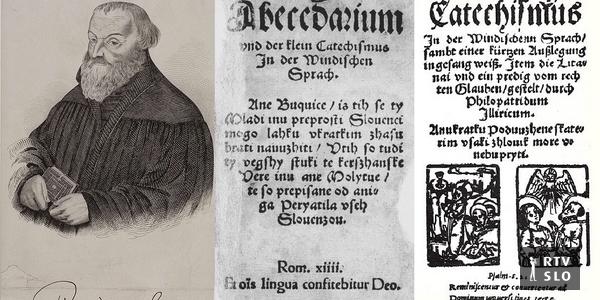 Abecedarium
vnd der klein Catechismus
In der Windischen
Sprach.
Ane Buquice / is tih se ty
Mladi inu preprosti Slouenci
mogo lahku vkratkim zhasu
brati nauuzhiti / Vtih so tudi
ty vegshy stuki te kerszhanske
Vere inu ane Molytue /
te so prepisane od aniv
ga Peryatila vseh
Slouenzou.
Rom. xiiii.
Et oīs lingua confitebitur Deo.
Catechismus
In der Windischenn Sprach /
sambt einer kürtzen Außlegung
in gesang weiß. Item die Lita-
nai vnd ein predig vom rech
ten Glauben / gestelt / durch
Philopatridum
Illiricum.
Anu kratku Poduuzhene skate-
rim vsaki zhlouik more vo
nebu pryti.
Psalm
RTV
SLO